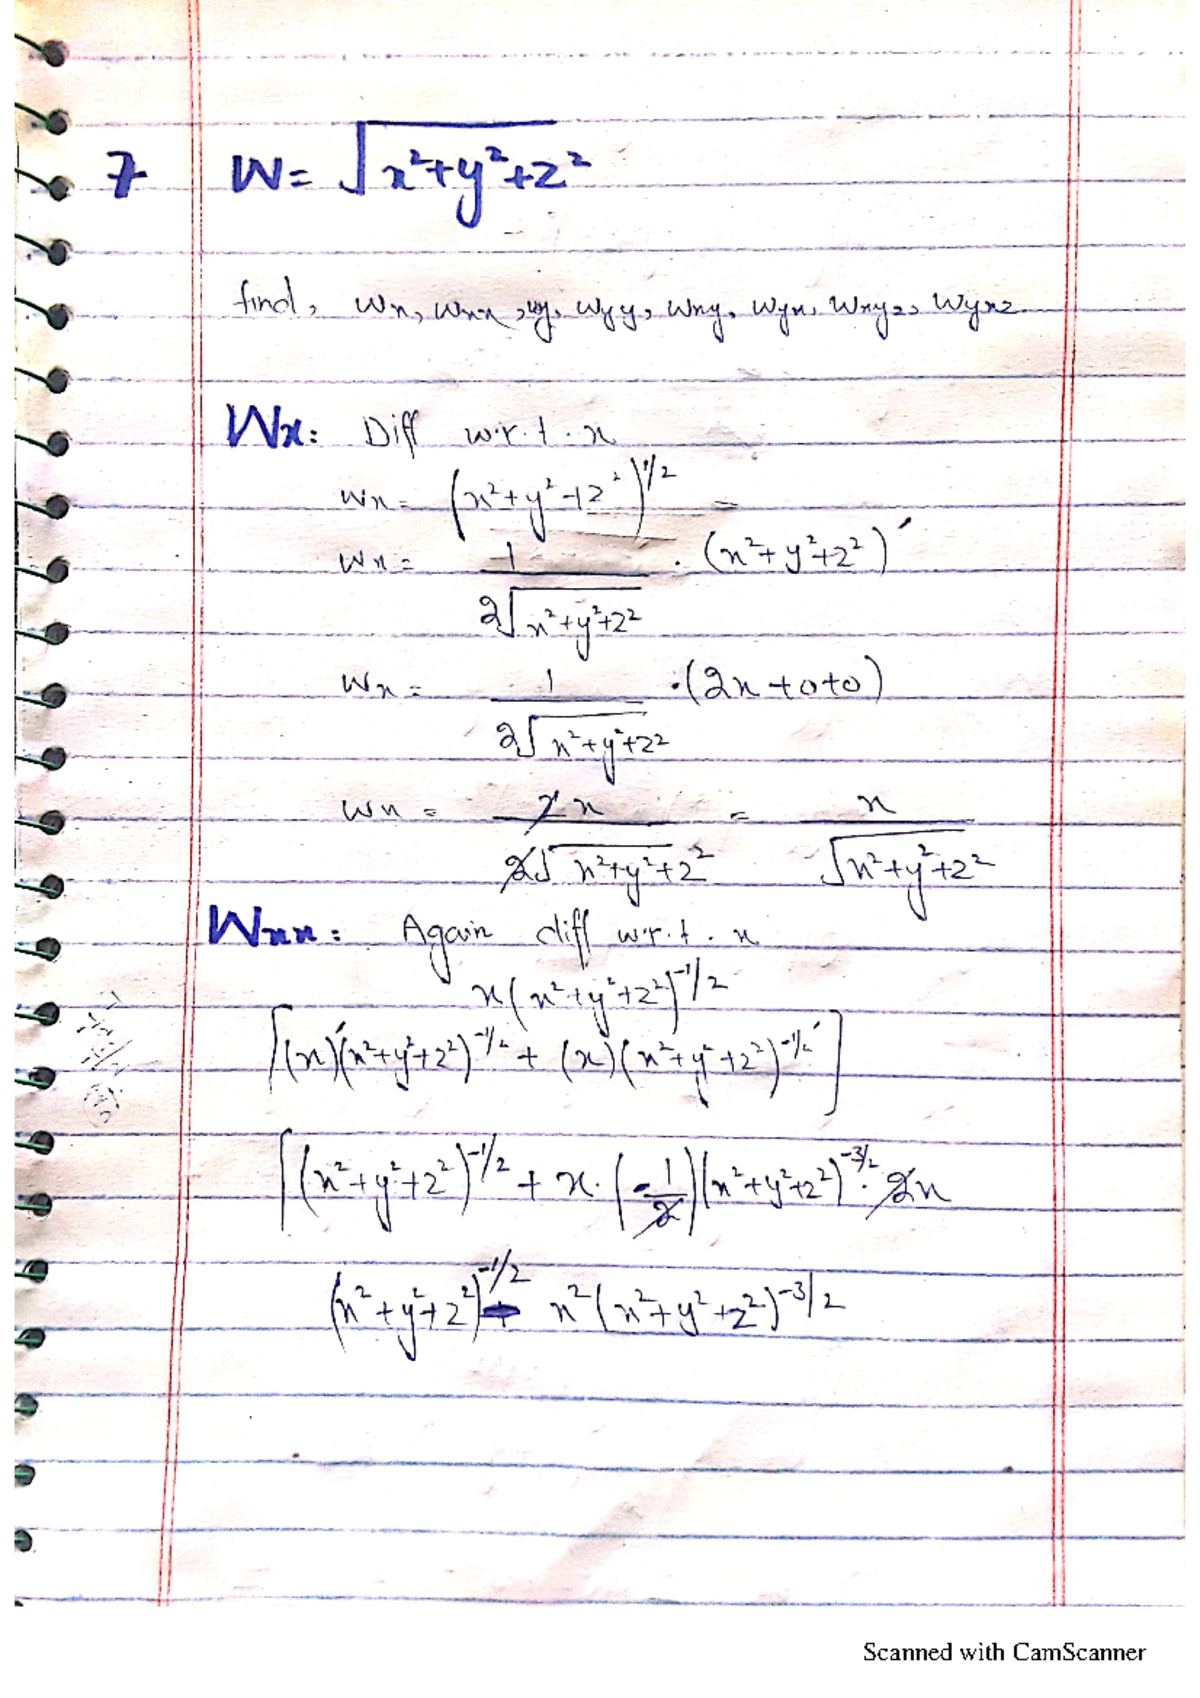 7 W = √x²+y²+z²
find, Wx, Wxx, Wy, Wyy, Wxy, Wyx, Wxyz, Wyxz
Wx: Diff w.r.t.x
Wx = (x²+y²+z²)^1/2 =
Wx = 1 / 2√x²+y²+z² · (x²+y²+z²)'
Wx = 1 / 2√x²+y²+z² · (2x+0+0)
Wx = 2x / 2√x²+y²+z² = x / √x²+y²+z²
Wxx: Again diff w.r.t.x
x(x²+y²+z²)^-1/2
[(x)'(x²+y²+z²)^-1/2 + (x)(x²+y²+z²)^-1/2']
[(x²+y²+z²)^-1/2 + x·(-1/2)(x²+y²+z²)^-3/2 · 2x
(x²+y²+z²)^-1/2 - x²(x²+y²+z²)^-3/2
Scanned with CamScanner